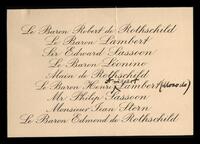 Le Baron Robert de Rothschild
Le Baron Lambert
Sir Edward Sassoon
Le Baron Léonino
Alain de Rothschild
Le Baron Henri Lambert
Mr Philip Sassoon
Monsieur Jean Stern
Le Baron Edmond de Rothschild